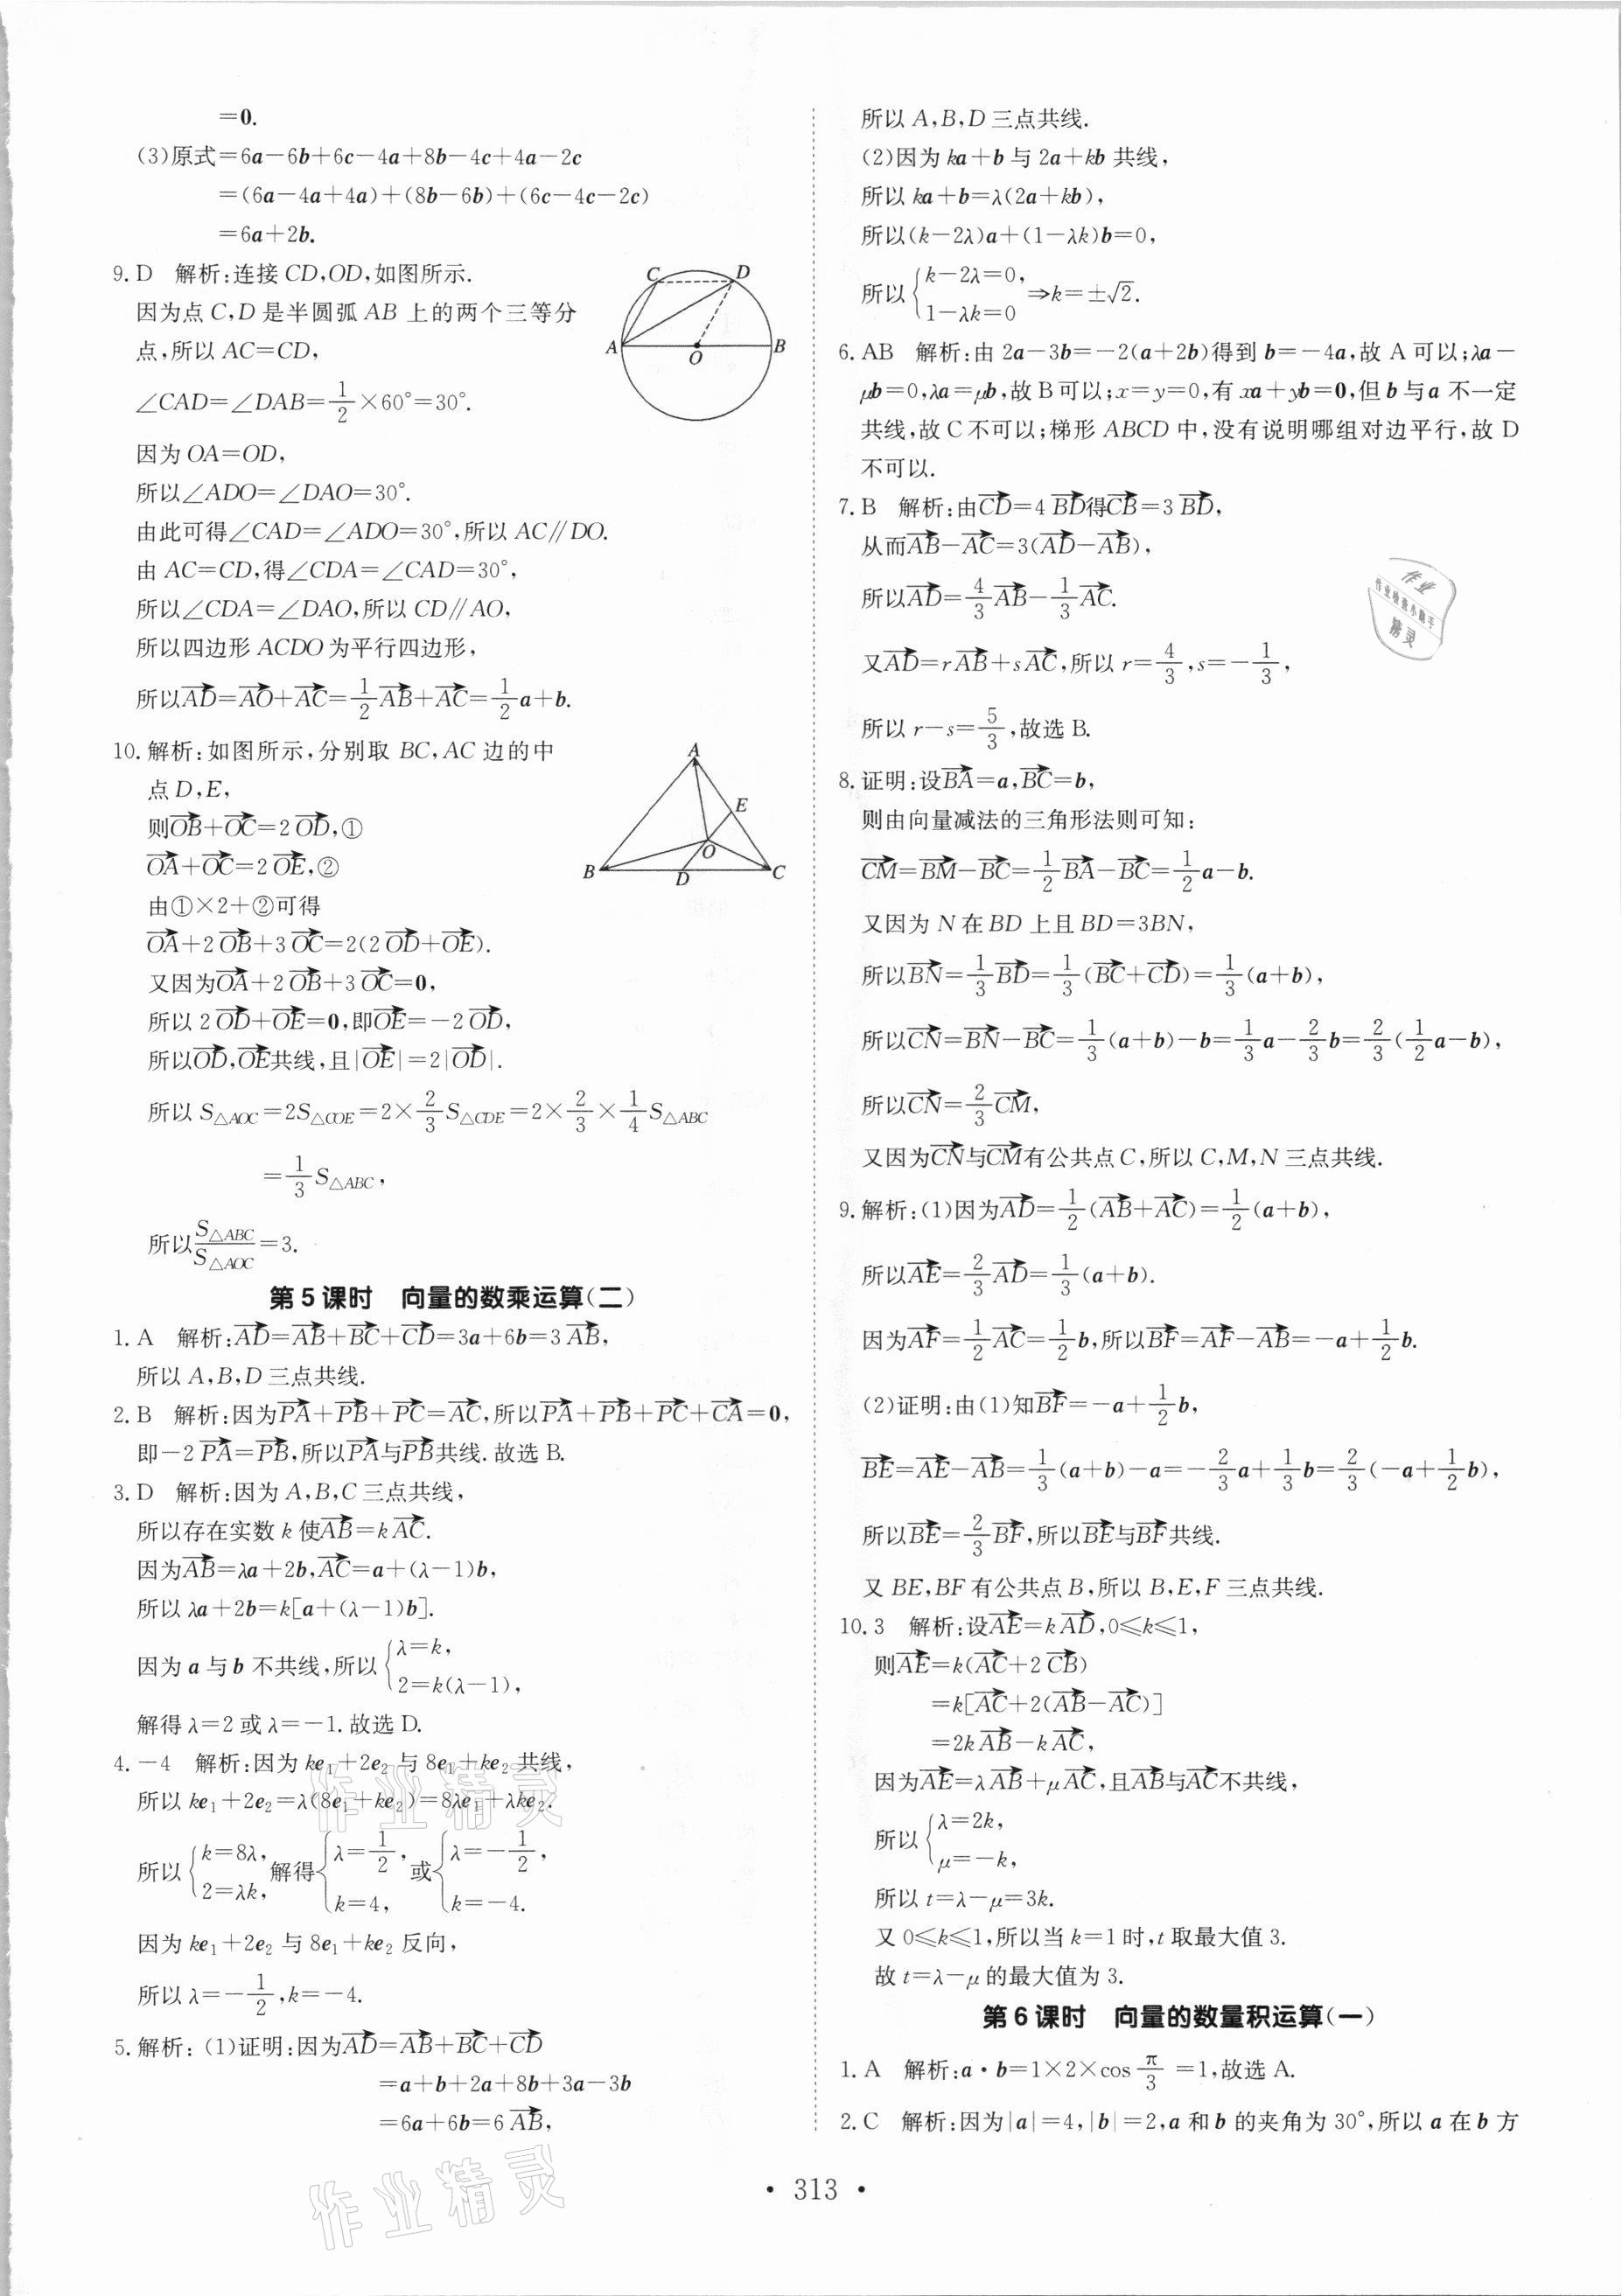 =0.
(3)原式=6a-6b+6c-4a+8b-4c+4a-2c
=(6a-4a+4a)+(8b-6b)+(6c-4c-2c)
=6a+2b.
9. D 解析:连接 CD,OD,如图所示.
因为点 C,D 是半圆弧 AB 上的两个三等分
点,所以 AC=CD,
∠CAD=∠DAB=1/2×60°=30°.
因为 OA=OD,
所以∠ADO=∠DAO=30°.
由此可得∠CAD=∠ADO=30°,所以 AC∥DO.
由 AC=CD,得∠CDA=∠CAD=30°,
所以∠CDA=∠DAO,所以 CD∥AO,
所以四边形 ACDO 为平行四边形,
所以AD→=AO→+AC→=1/2 AB→+AC→=1/2 a+b.
C D A O B
10. 解析:如图所示,分别取 BC,AC 边的中
点 D,E,
则OB→+OC→=2 OD→,①
OA→+OC→=2 OE→,②
由①×2+②可得
OA→+2 OB→+3 OC→=2(2 OD→+OE→).
又因为OA→+2 OB→+3 OC→=0,
所以 2 OD→+OE→=0,即OE→=-2 OD→,
所以OD→,OE→共线,且|OE→|=2|OD→|.
所以 S△AOC=2S△COE=2×2/3 S△CDE=2×2/3×1/4 S△ABC
=1/3 S△ABC,
所以S△ABC/S△AOC=3.
A E O B D C
第 5 课时 向量的数乘运算(二)
1. A 解析:AD→=AB→+BC→+CD→=3a+6b=3 AB→,
所以 A,B,D 三点共线.
2. B 解析:因为PA→+PB→+PC→=AC→,所以PA→+PB→+PC→+CA→=0,
即-2 PA→=PB→,所以PA→与PB→共线.故选 B.
3. D 解析:因为 A,B,C 三点共线,
所以存在实数 k 使AB→=k AC→.
因为AB→=λa+2b,AC→=a+(λ-1)b,
所以 λa+2b=k[a+(λ-1)b].
因为 a 与 b 不共线,所以{λ=k,
2=k(λ-1),
解得 λ=2 或 λ=-1.故选 D.
4. -4 解析:因为 ke₁+2e₂ 与 8e₁+ke₂ 共线,
所以 ke₁+2e₂=λ(8e₁+ke₂)=8λe₁+λke₂.
所以{k=8λ, 2=λk, 解得{λ=1/2, k=4, 或{λ=-1/2, k=-4.
因为 ke₁+2e₂ 与 8e₁+ke₂ 反向,
所以 λ=-1/2,k=-4.
5. 解析:(1)证明:因为AD→=AB→+BC→+CD→
=a+b+2a+8b+3a-3b
=6a+6b=6 AB→,
所以 A,B,D 三点共线.
(2)因为 ka+b 与 2a+kb 共线,
所以 ka+b=λ(2a+kb),
所以(k-2λ)a+(1-λk)b=0,
所以{k-2λ=0, 1-λk=0 ⇒k=±√2.
6. AB 解析:由 2a-3b=-2(a+2b)得到 b=-4a,故 A 可以;λa-
μb=0,λa=μb,故 B 可以;x=y=0,有 xa+yb=0,但 b 与 a 不一定
共线,故 C 不可以;梯形 ABCD 中,没有说明哪组对边平行,故 D
不可以.
7. B 解析:由CD→=4 BD→得CB→=3 BD→,
从而AB→-AC→=3(AD→-AB→),
所以AD→=4/3 AB→-1/3 AC→.
又AD→=r AB→+s AC→,所以 r=4/3,s=-1/3,
所以 r-s=5/3,故选 B.
8. 证明:设BA→=a,BC→=b,
则由向量减法的三角形法则可知:
CM→=BM→-BC→=1/2 BA→-BC→=1/2 a-b.
又因为 N 在 BD 上且 BD=3BN,
所以BN→=1/3 BD→=1/3(BC→+CD→)=1/3(a+b),
所以CN→=BN→-BC→=1/3(a+b)-b=1/3 a-2/3 b=2/3(1/2 a-b),
所以CN→=2/3 CM→,
又因为CN→与CM→有公共点 C,所以 C,M,N 三点共线.
9. 解析:(1)因为AD→=1/2(AB→+AC→)=1/2(a+b),
所以AE→=2/3 AD→=1/3(a+b).
因为AF→=1/2 AC→=1/2 b,所以BF→=AF→-AB→=-a+1/2 b.
(2)证明:由(1)知BF→=-a+1/2 b,
BE→=AE→-AB→=1/3(a+b)-a=-2/3 a+1/3 b=2/3(-a+1/2 b),
所以BE→=2/3 BF→,所以BE→与BF→共线.
又 BE,BF 有公共点 B,所以 B,E,F 三点共线.
10. 3 解析:设AE→=k AD→,0≤k≤1,
则AE→=k(AC→+2 CB→)
=k[AC→+2(AB→-AC→)]
=2k AB→-k AC→,
因为AE→=λ AB→+μ AC→,且AB→与AC→不共线,
所以{λ=2k, μ=-k,
所以 t=λ-μ=3k.
又 0≤k≤1,所以当 k=1 时,t 取最大值 3.
故 t=λ-μ 的最大值为 3.
第 6 课时 向量的数量积运算(一)
1. A 解析:a·b=1×2×cos π/3 =1,故选 A.
2. C 解析:因为|a|=4,|b|=2,a 和 b 的夹角为 30°,所以 a 在 b 方
• 313 •
作业
作业检查小助手
精灵
作业精灵
作业精灵